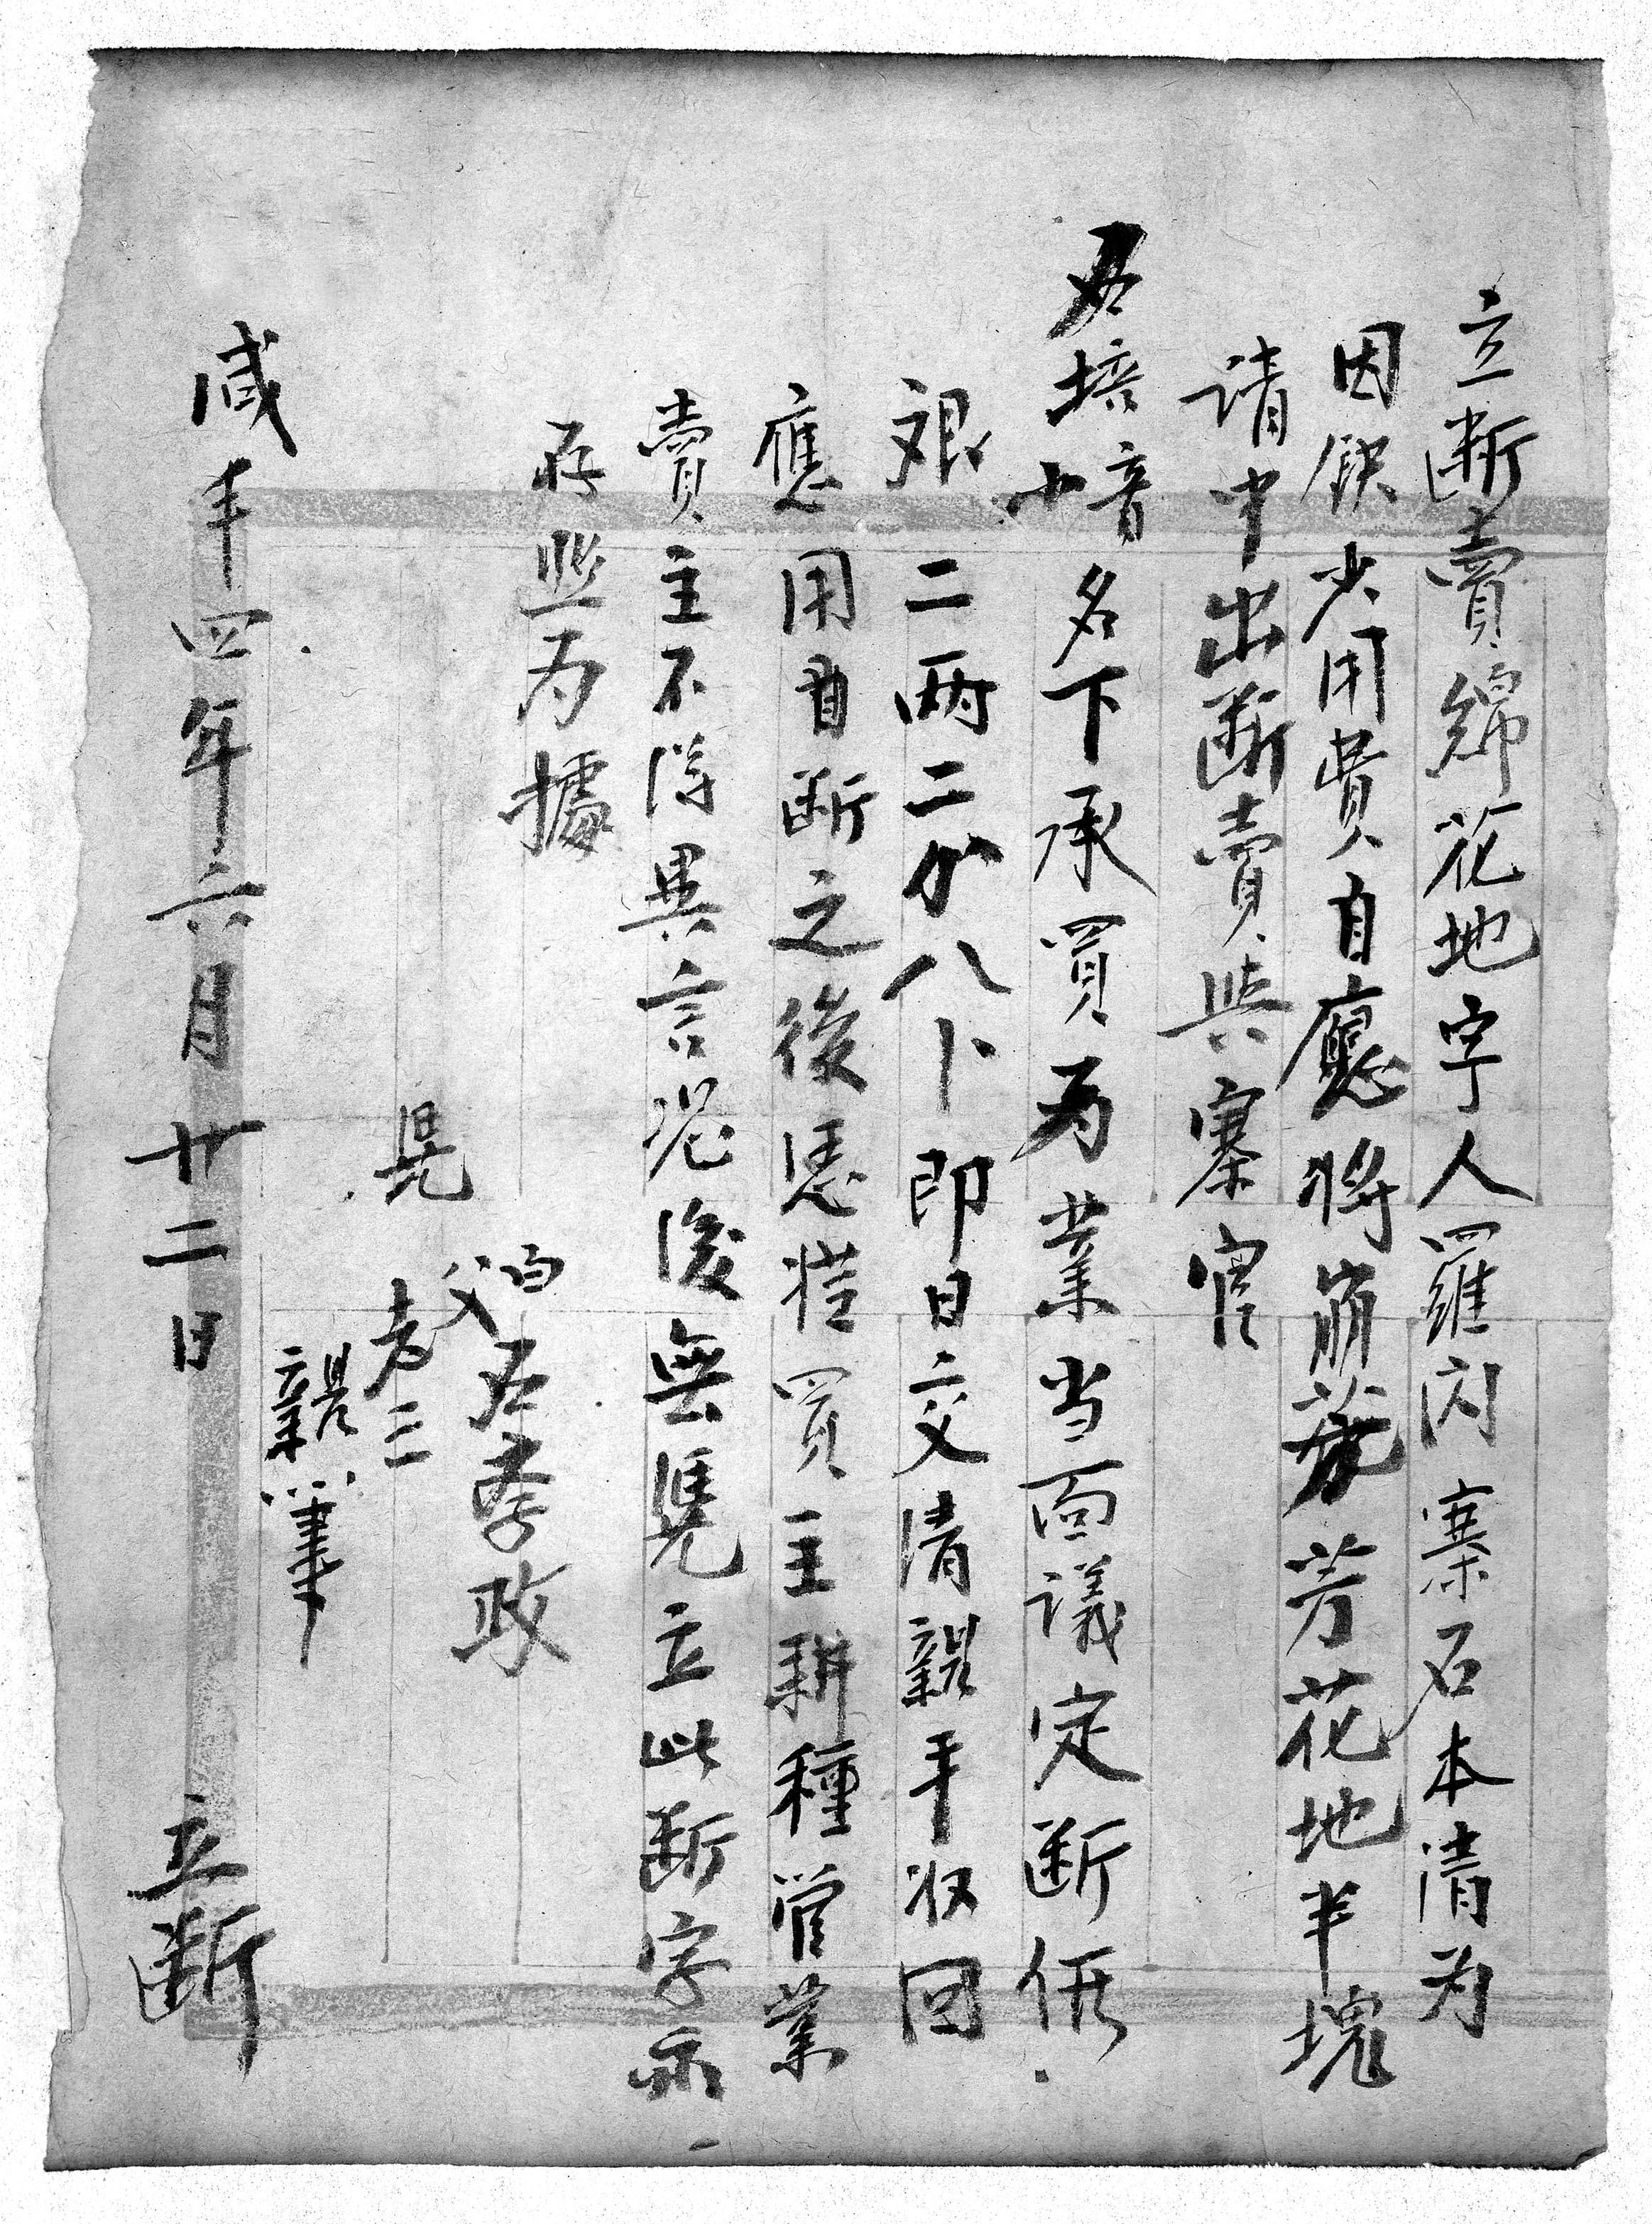 立断賣綿花地字人羅閃寨石本清為
因缺少用費自應將崩芳花地半塊
請中出断賣與寨官
培音
小
名下承買為業当面議定断價
艮二两二分八卜即日交清親手收回
應用自断之後憑從買主耕種管業
賣主不得異言恐後無凴立此断字永
存照為據
石孝政
晃老三
親筆
咸丰四年六月廿二日 立断